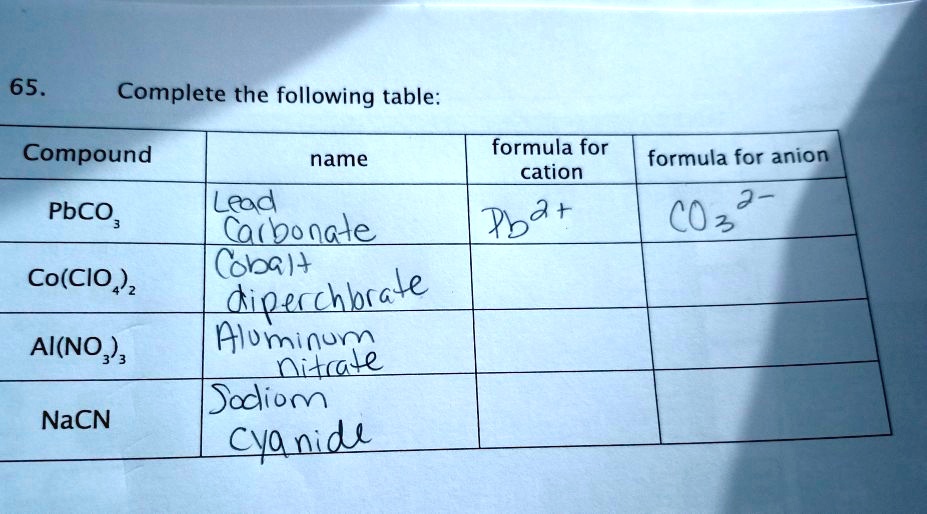 65. Complete the following table:
Compound name formula for cation formula for anion
PbCO₃ Lead Carbonate Pb²⁺ CO₃²⁻
Co(ClO₄)₂ Cobalt diperchlorate
Al(NO₃)₃ Aluminum nitrate
NaCN Sodiom cyanide